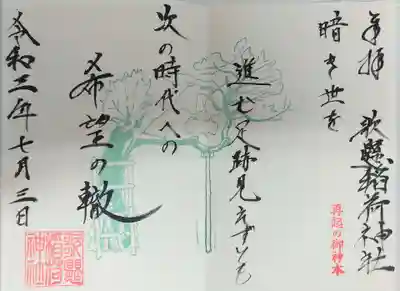 奉拝 歌懸稲荷神社
暗き世を
再認の御神木
進む足跡見えずとも
次の時代への
希望の轍
令和三年七月三日
歌懸稲荷神社